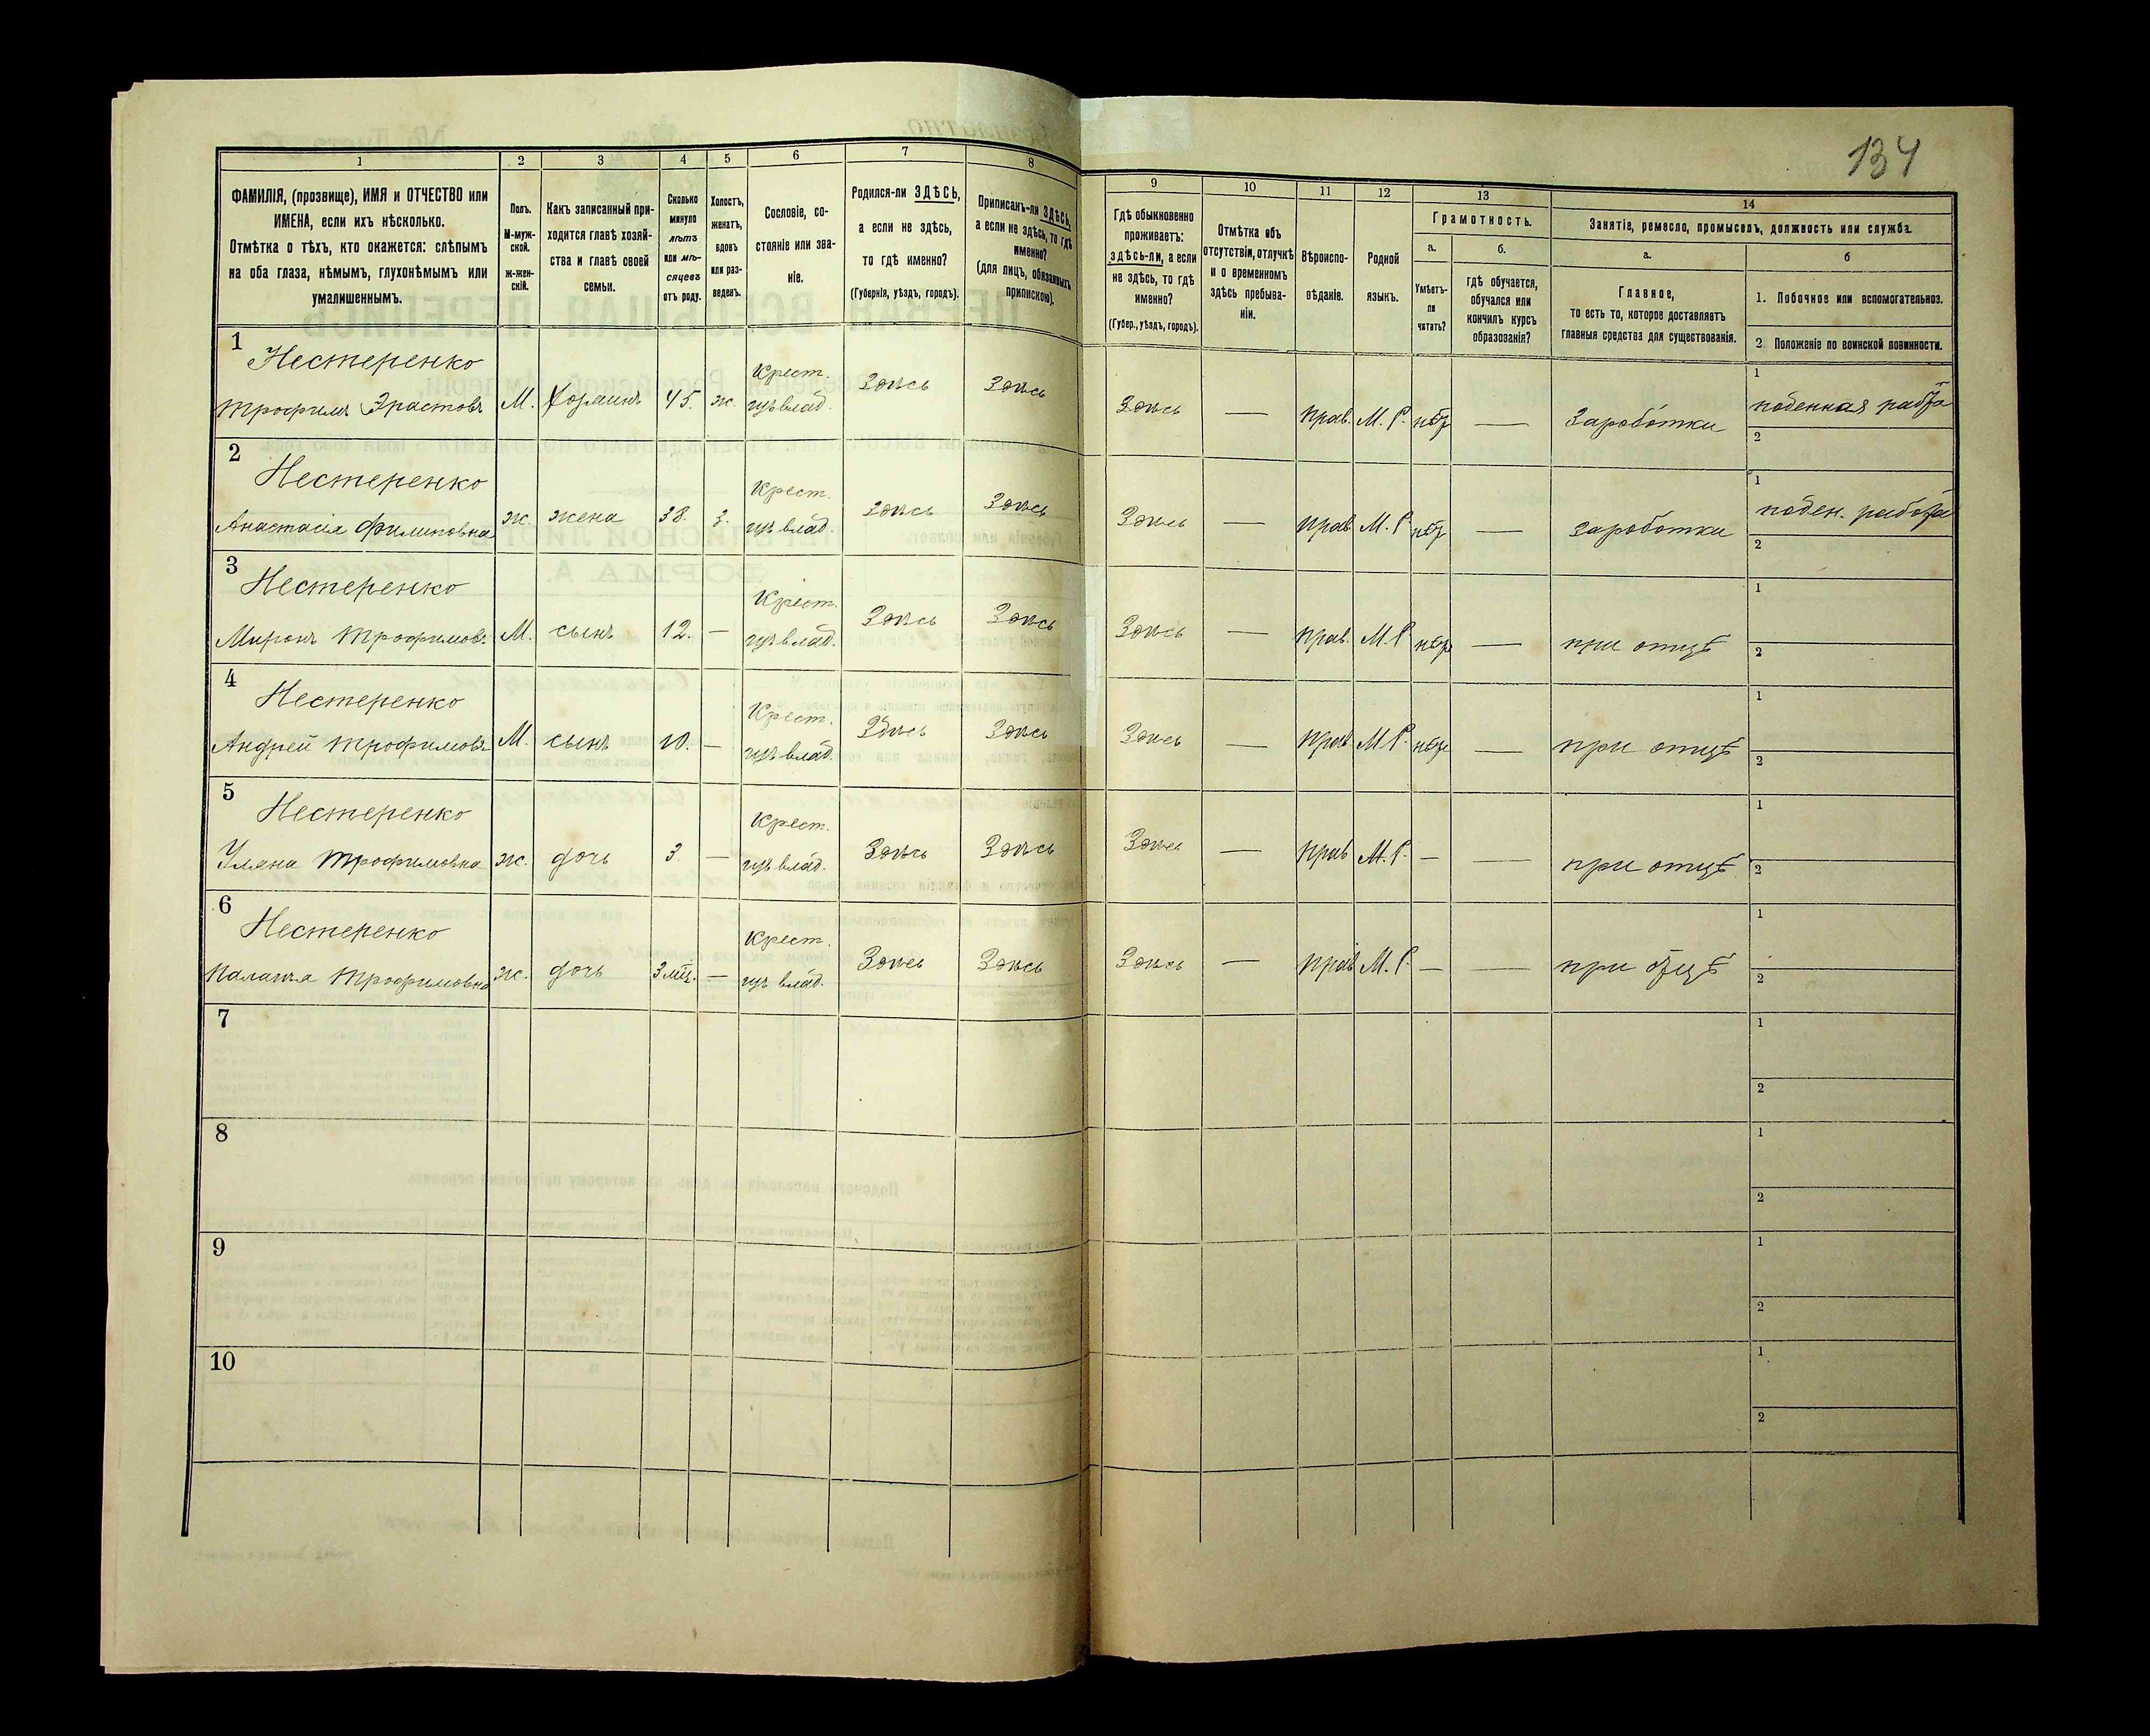 134
1 2 3 4 5 6 7 8 9 10 11 12 13 14
ФАМИЛІЯ, (прозвище), ИМЯ и ОТЧЕСТВО или
ИМЕНА, если ихъ нѣсколько.
Отмѣтка о тѣхъ, кто окажется: слѣпымъ
на оба глаза, нѣмымъ, глухонѣмымъ или
умалишеннымъ.
Полъ.
М-муж-
ской.
ж-жен-
скій.
Какъ записанный при-
ходится главѣ хозяй-
ства и главѣ своей
семьи.
Сколько
минуло
лѣтъ
или мѣ-
сяцевъ
отъ роду.
Холостъ,
женатъ,
вдовъ
или раз-
веденъ.
Сословіе, со-
стояніе или зва-
ніе.
Родился-ли ЗДѢСЬ,
а если не здѣсь,
то гдѣ именно?
(Губернія, уѣздъ, городъ).
Приписанъ-ли ЗДѢСЬ,
а если не здѣсь, то гдѣ
именно?
(для лицъ, обязанныхъ
припискою).
Гдѣ обыкновенно
проживаетъ:
здѣсь-ли, а если
не здѣсь, то гдѣ
именно?
(Губер., уѣздъ, городъ).
Отмѣтка объ
отсутствіи, отлучкѣ
и о временномъ
здѣсь пребыва-
ніи.
Вѣроиспо-
вѣданіе.
Родной
языкъ.
Грамотность.
а.
Умѣетъ-
ли
читать?
б.
гдѣ обучается,
обучался или
кончилъ курсъ
образованія?
Занятіе, ремесло, промыселъ, должность или служба.
а.
Главное,
то есть то, которое доставляетъ
главныя средства для существованія.
б
1. Побочное или вспомогательное.
2. Положеніе по воинской повинности.
1
Нестеренко Крест.
Трофимъ Эрастовъ М. Хозяинъ 45. ж. изъ влад. Здѣсь Здѣсь Здѣсь — прав. М. Р. нѣтъ — Заработки 1 поденная работа
2
2
Нестеренко Крест.
Анастасія Филиповна ж. жена 38. з. изъ влад. Здѣсь Здѣсь Здѣсь — прав. М. Р. нѣтъ — заработки 1 поден. работа
2
3
Нестеренко Крест.
Миронъ Трофимовъ М. сынъ 12. — изъ влад. Здѣсь Здѣсь Здѣсь — прав. М. Р. нѣтъ — при отцѣ 1
2
4
Нестеренко Крест.
Андрей Трофимовъ М. сынъ 10. — изъ влад. Здѣсь Здѣсь Здѣсь — прав. М. Р. нѣтъ — при отцѣ 1
2
5
Нестеренко Крест.
Уляна Трофимовна ж. дочь 3 — изъ влад. Здѣсь Здѣсь Здѣсь — прав М. Р. — — при отцѣ 1
2
6
Нестеренко Крест.
Палажа Трофимовна ж. дочь 3 мц. — изъ влад. Здѣсь Здѣсь Здѣсь — прав М. Р. — — при отцѣ 1
2
7 1
2
8 1
2
9 1
2
10 1
2